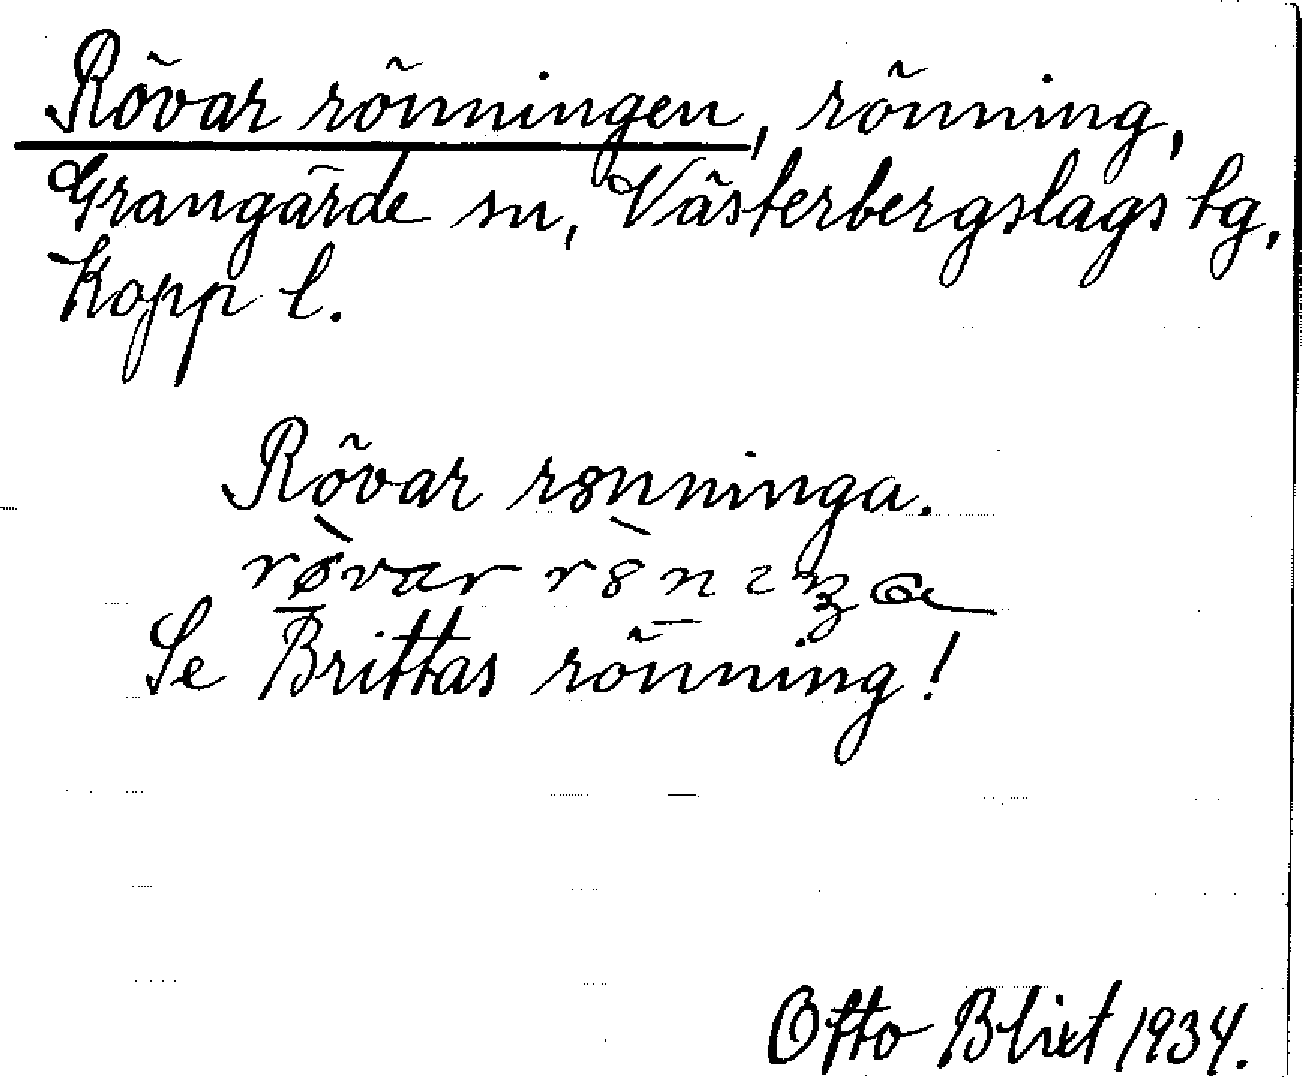 Rövar rönningen, rönning,
Grangärde sn, Västerbergslags tg,
Kopp l.
Rövar rønninga.
Se Brittas rönning!
Otto Blixt 1934.